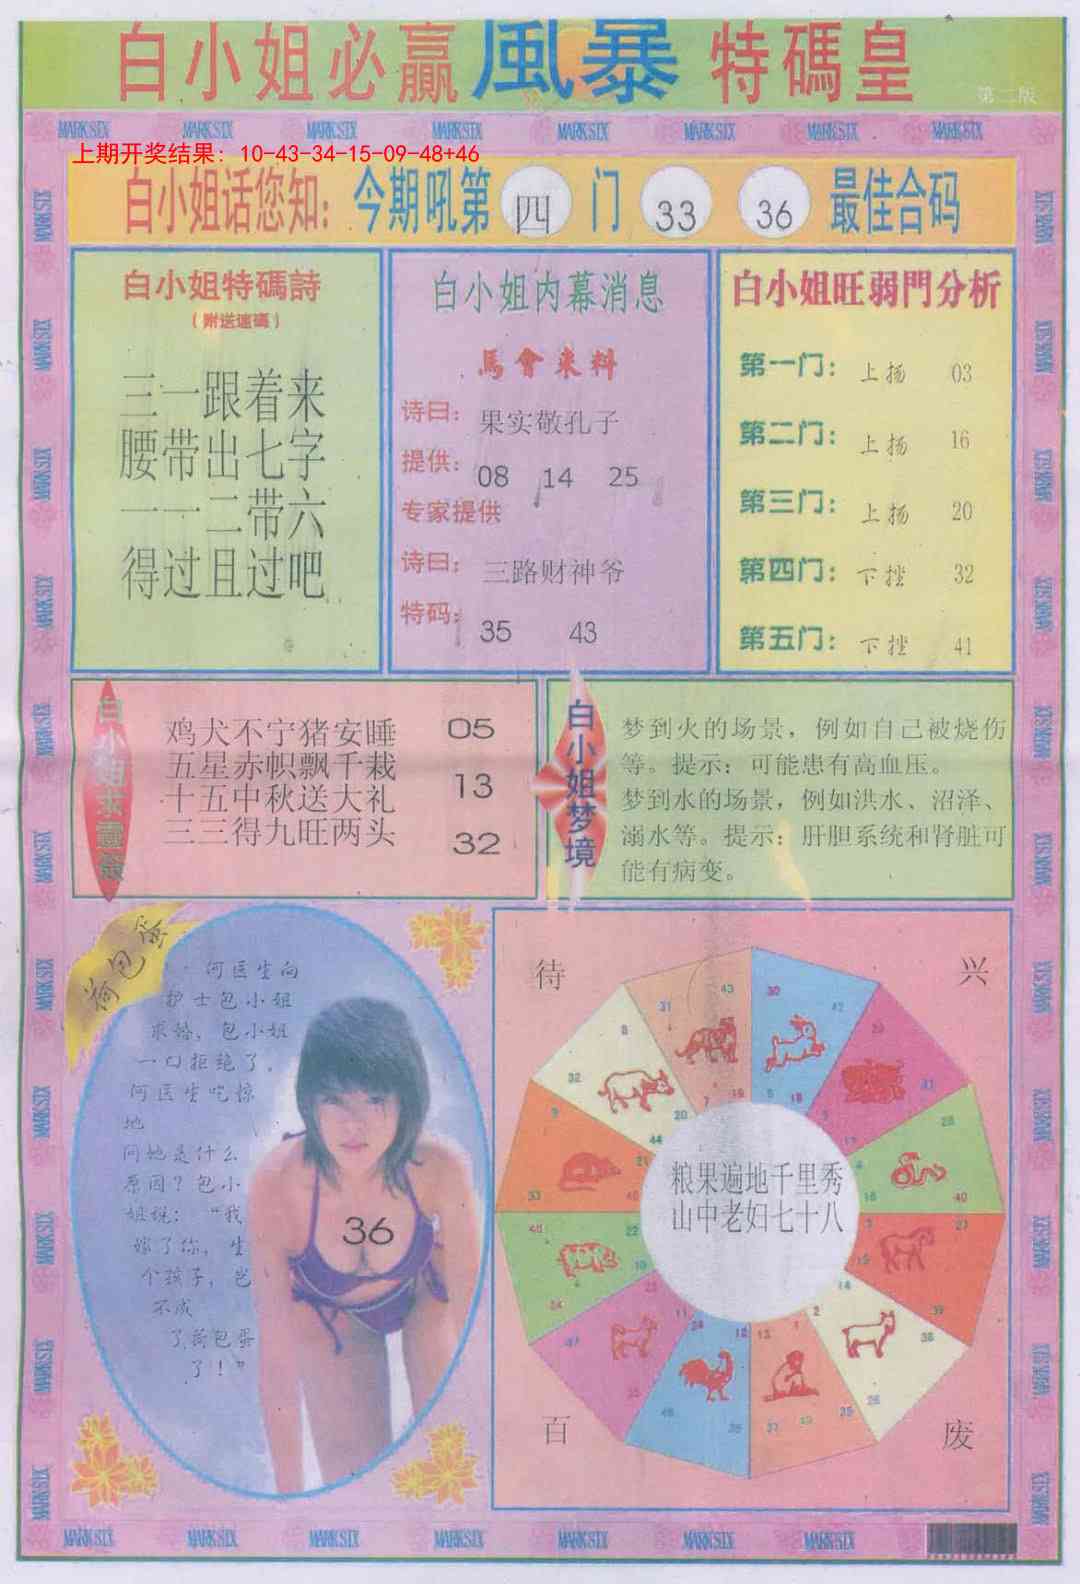 白小姐必赢風暴特碼皇
第二版
MARK SIX MARK SIX MARK SIX MARK SIX MARK SIX MARK SIX MARK SIX MARK SIX
上期开奖结果：10-43-34-15-09-48+46
白小姐话您知：今期吼第 四 门 33 36 最佳合码
白小姐特碼詩
（附送速碼）
三一跟着来
腰带出七字
一一二带六
得过且过吧
白小姐内幕消息
馬會来料
诗曰：果实敬孔子
提供：08 14 25
专家提供
诗曰：三路财神爷
特码：35 43
白小姐旺弱門分析
第一门：上扬 03
第二门：上扬 16
第三门：上扬 20
第四门：下挫 32
第五门：下挫 41
白小姐求靈簽
鸡犬不宁猪安睡 05
五星赤帜飘千栽
十五中秋送大礼 13
三三得九旺两头 32
白小姐梦境
梦到火的场景，例如自己被烧伤
等。提示：可能患有高血压。
梦到水的场景，例如洪水、沼泽、
溺水等。提示：肝胆系统和肾脏可
能有病变。
荷包蛋
何医生向
护士包小姐
求婚，包小姐
一口拒绝了。
何医生吃惊
地
问她是什么
原因？包小
姐说：“我
嫁了你，生
个孩子，岂
不成
了荷包蛋
了！”
36
待 兴
粮果遍地千里秀
山中老妇七十八
百 废
MARK SIX MARK SIX MARK SIX MARK SIX MARK SIX MARK SIX MARK SIX